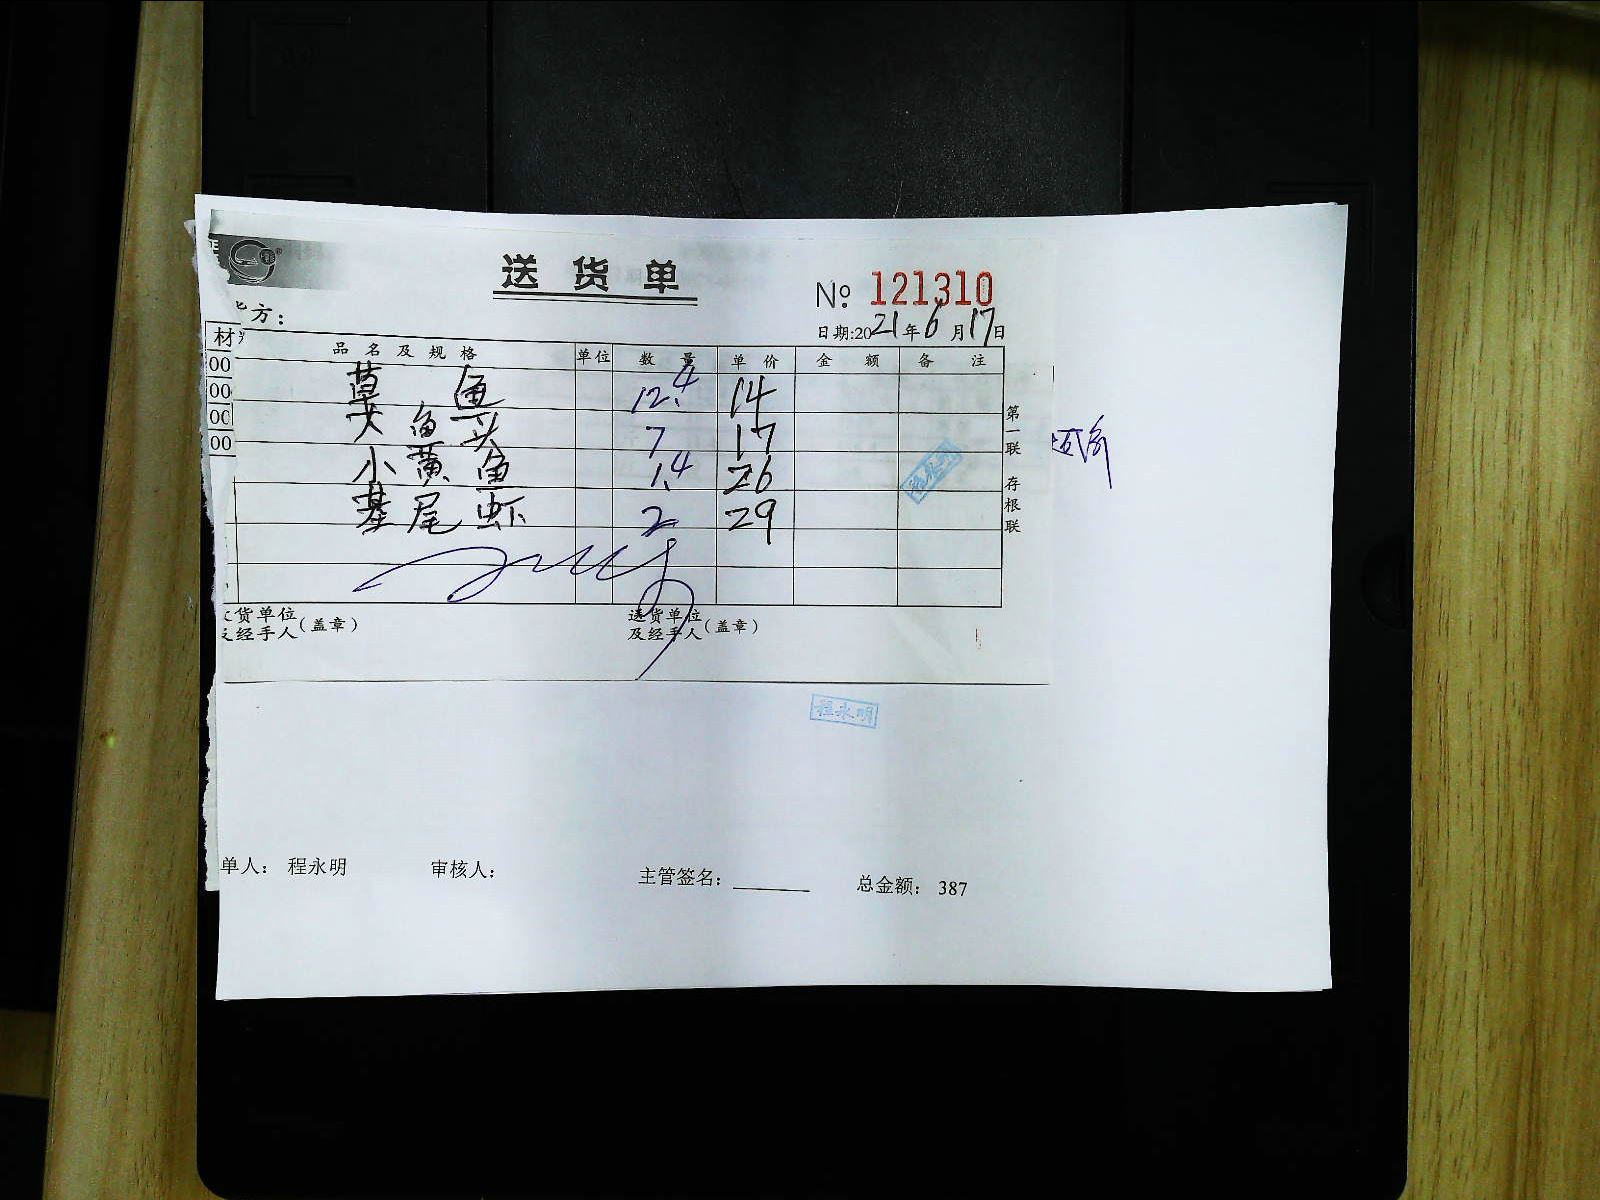 送货单
No 121310
方：
日期:2021年6月17日
材
品名及规格 单位 数量 单价 金额 备注
00
草鱼 12.4 14
00
大鱼头 7 17
00
小黄鱼 1.4 26
00
基尾虾 2 29
第一联 存根联
货单位
及经手人(盖章)
送货单位
及经手人(盖章)
程永明
单人： 程永明 审核人： 主管签名：________ 总金额： 387